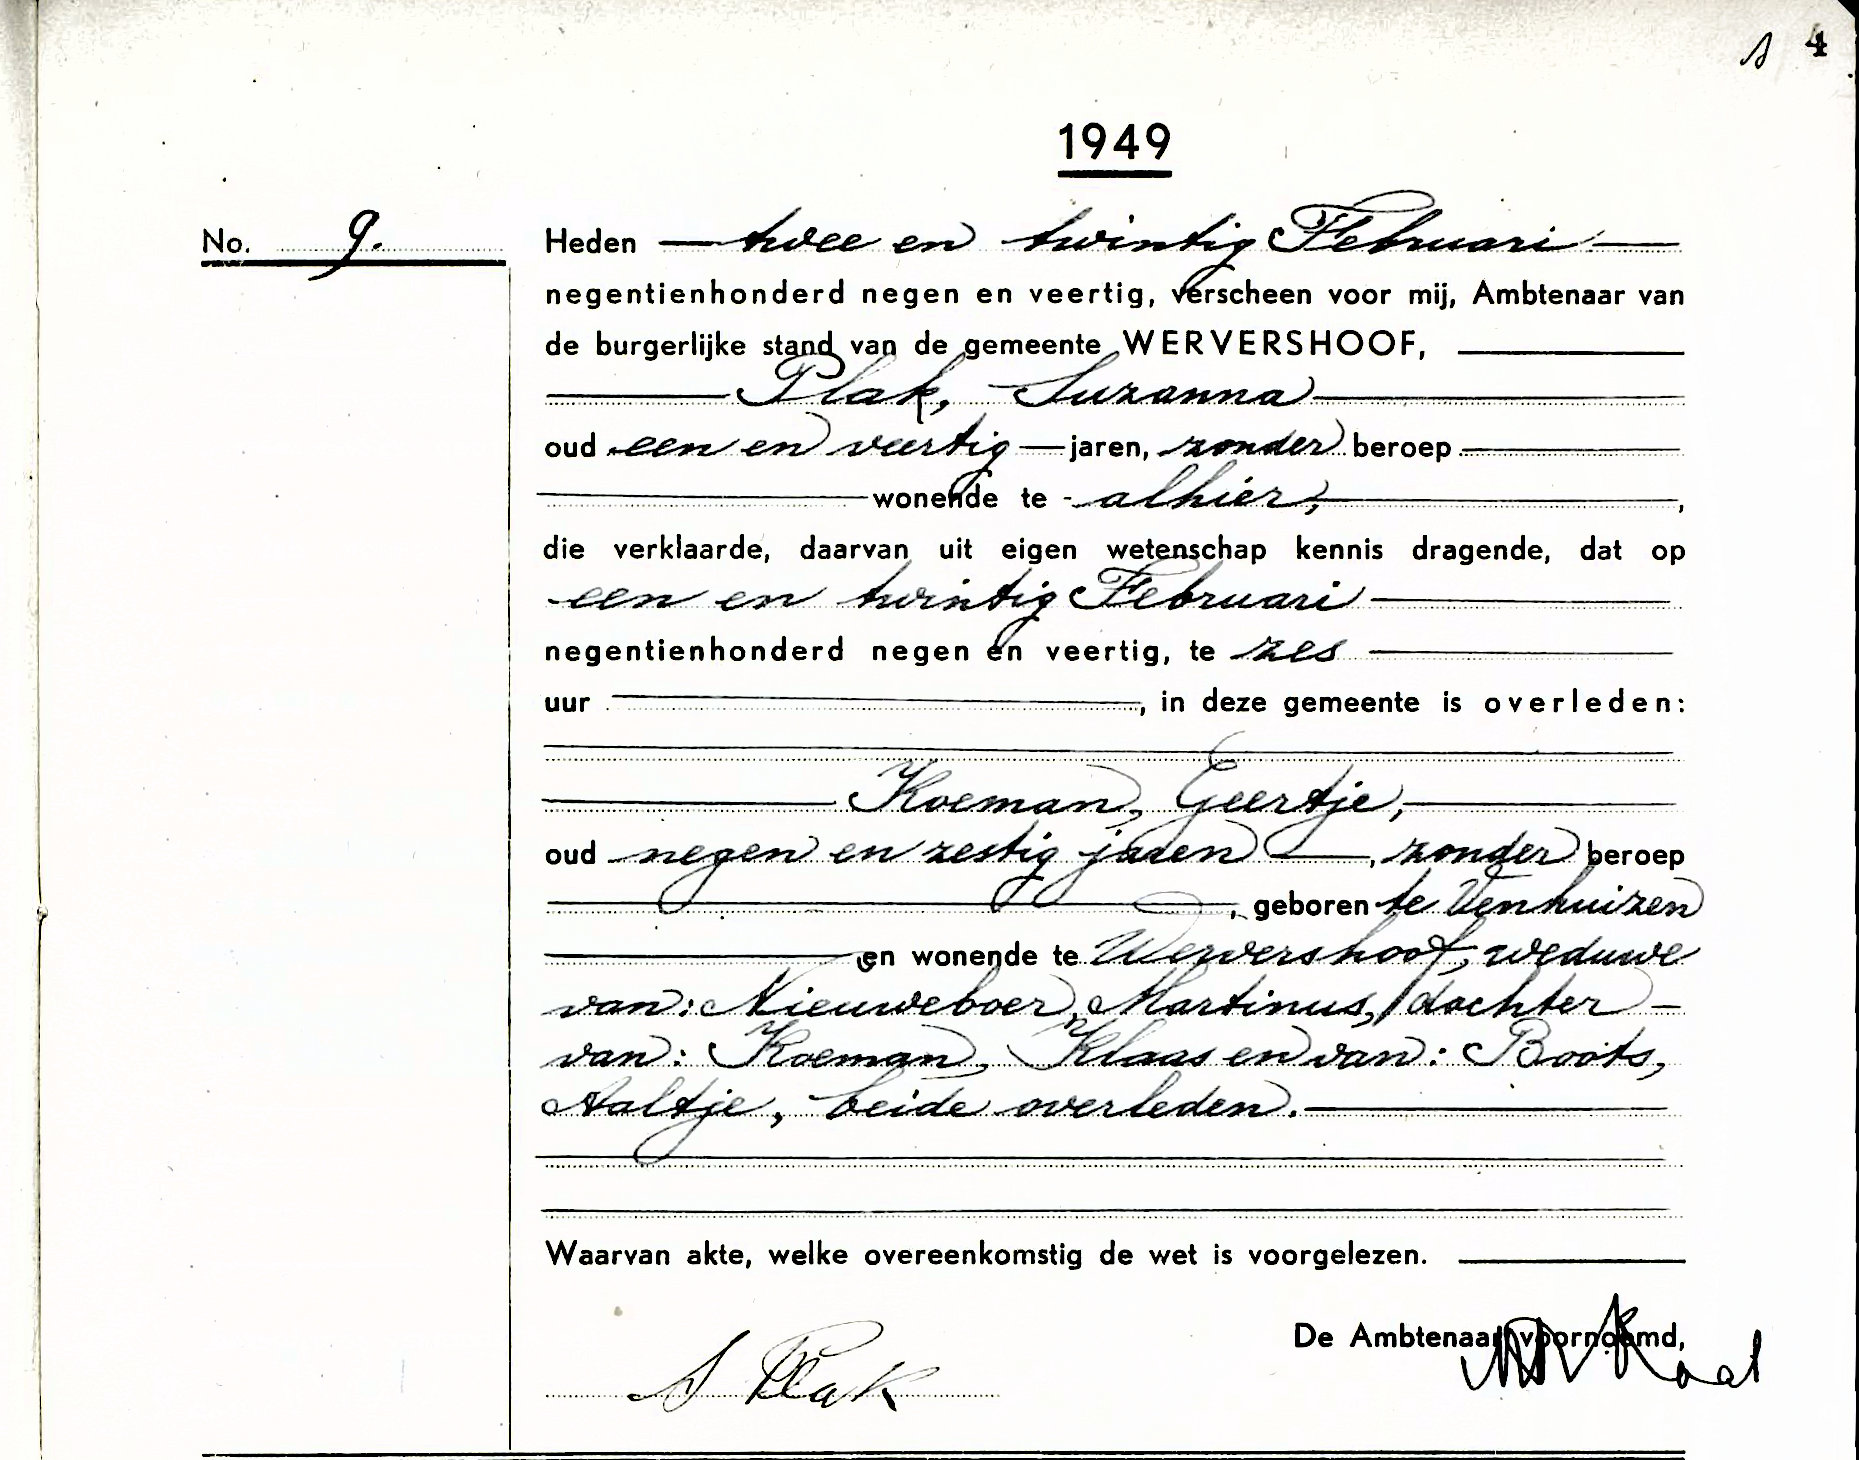 s 4
1949
No. 9. Heden twee en twintig Februari
negentienhonderd negen en veertig, verscheen voor mij, Ambtenaar van
de burgerlijke stand van de gemeente WERVERSHOOF,
Plak, Suzanna
oud een en veertig jaren, zonder beroep
wonende te alhier,,
die verklaarde, daarvan uit eigen wetenschap kennis dragende, dat op
een en twintig Februari
negentienhonderd negen en veertig, te zes
uur , in deze gemeente is overleden:
Koeman, Geertje,
oud negen en zestig jaren , zonder beroep
, geboren te Venhuizen
en wonende te Wervershoof, weduwe
van: Nieuweboer, Martinus, dochter
van: Koeman, Klaas en van: Boots,
Aaltje, beide overleden.
Waarvan akte, welke overeenkomstig de wet is voorgelezen.
De Ambtenaar voornoemd,
S Plak